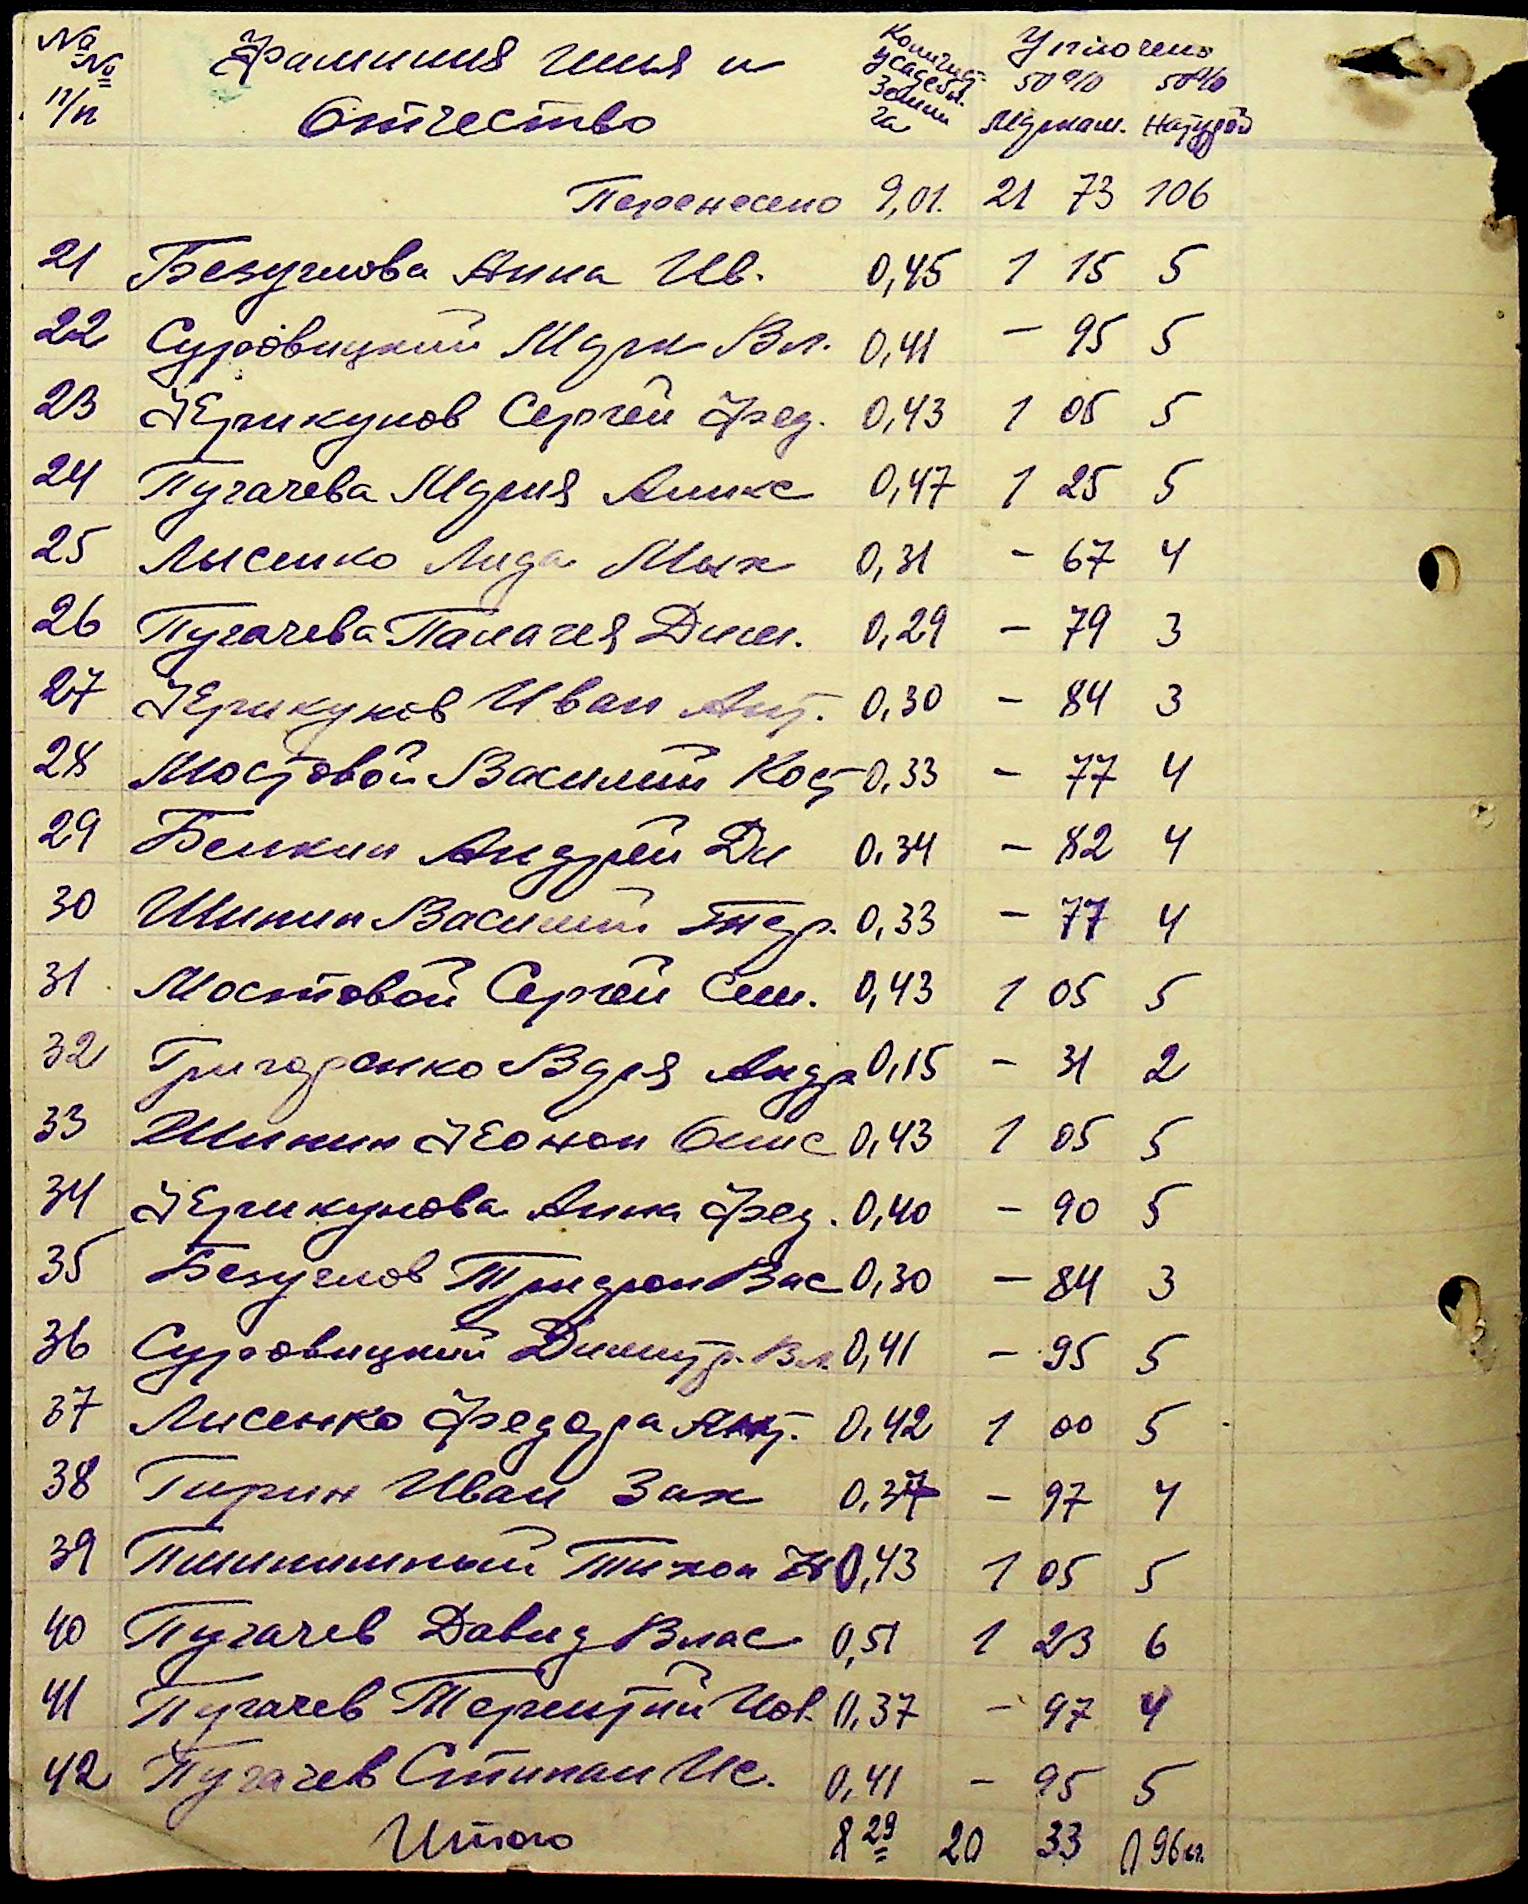 № № п/п Фамилия Имя и Отчество Количест. усадебн. земли га Уплочено 50% Муркам. 50% Натурой
Перенесено 9,01. 21 73 106
21 Безуглова Анна Ив. 0,45 1 15 5
22 Суровицкий Марк Вл. 0,41 – 95 5
23 Черикунов Сергей Фед. 0,43 1 05 5
24 Пугачева Мария Алекс 0,47 1 25 5
25 Лысенко Лида Мих 0,31 – 67 4
26 Пугачева Палагея Дим. 0,29 – 79 3
27 Черикунов Иван Ант. 0,30 – 84 3
28 Мостовой Василий Кост 0,33 – 77 4
29 Белкин Андрей Дм 0,34 – 82 4
30 Шинин Василий 0,33 – 77 4
31 Мостовой Сергей Сем. 0,43 1 05 5
32 Григоренко Варя Андр 0,15 – 31 2
33 Шинин 0,43 1 05 5
34 Черикунова Анна Фед. 0,40 – 90 5
35 Безуглов Вас 0,30 – 84 3
36 Суровицкий Димитр. Вл. 0,41 – 95 5
37 Лисенко Федора Ант. 0,42 1 00 5
38 Гирин Иван Зах 0,37 – 97 4
39 Тихон 0,43 1 05 5
40 Пугачев Давид Влас 0,51 1 23 6
41 Пугачев Терентий Иов. 0,37 – 97 4
42 Пугачев Стипан Ис. 0,41 – 95 5
Итого 8 29 20 33 96 кг.